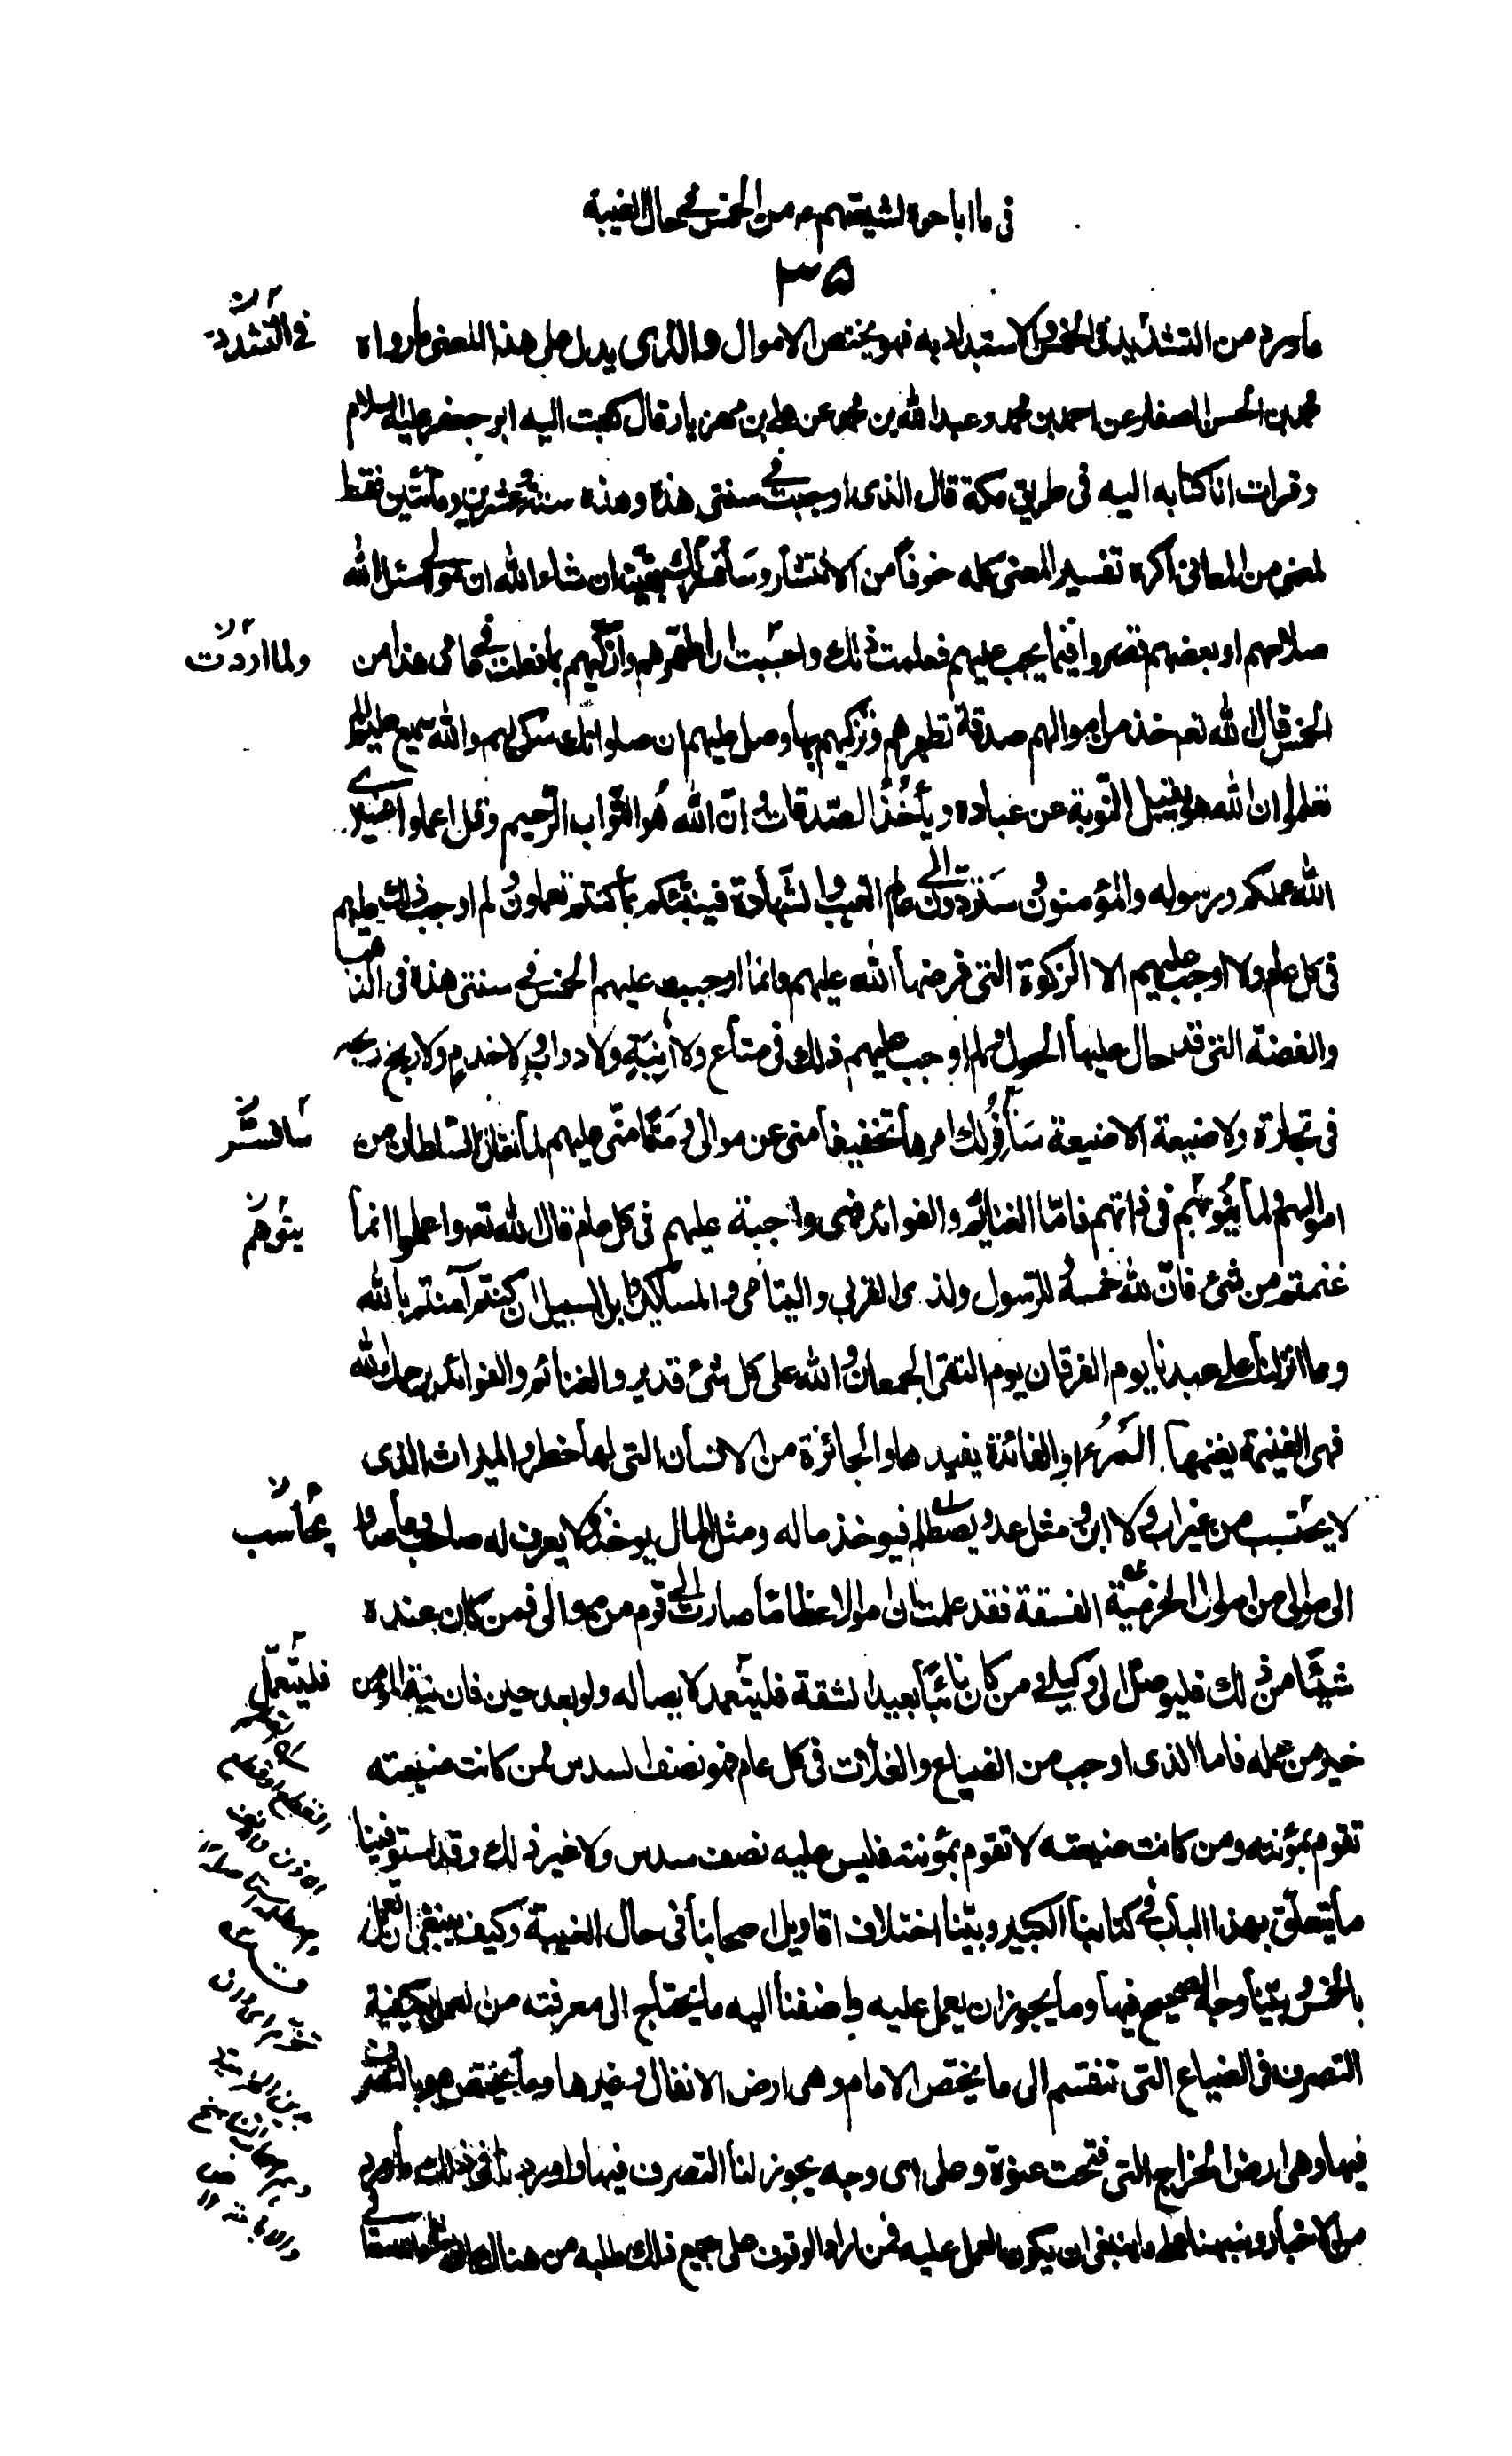 فى ما اباحوه لشيعتهم ع من الخمس فى حال الغيبة
٣٥
ما ورد من التشديد فى الخمس والاستبداد به فهو يختص الاموال والذى يدل على هذا المعنى ما رواه
محمد بن الحسن الصفار عن احمد بن محمد وعبد الله بن محمد عن على بن مهزيار قال كتب اليه ابو جعفر عليه السلام
وقرات انا كتابه اليه فى طريق مكة قال الذى اوجبت فى سنتى هذه وهذه سنة عشرين ومأتين فقط
لمعنى من المعانى اكره تفسير المعنى كله خوفاً من الانتشار وسأفسر لك بقيته ان شاء الله ان موالى اسئل الله
صلاحهم او بعضهم قصروا فيما يجب عليهم فعلمت ذلك واحببت ان اطهرهم وازكيهم بما فعلت فى عامى هذا من
الخمس قال الله تعه خذ من اموالهم صدقة تطهرهم وتزكيهم بها وصل عليهم ان صلواتك سكن لهم والله سميع عليم الم
تعلموا ان الله هو يقبل التوبة عن عباده ويأخذ الصدقات وان الله هو التواب الرحيم وقل اعملوا فسيرى
الله عملكم ورسوله والمؤمنون وستردون الى عالم الغيب والشهادة فينبئكم بما كنتم تعملون ولم اوجب ذلك عليهم
فى كل عام ولا اوجب عليهم الا الزكوة التى فرضها الله عليهم وانما اوجبت عليهم الخمس فى سنتى هذه فى الذهب
والفضة التى قد حال عليها الحول ولم اوجب عليهم ذلك فى متاع ولا آنية ولا دواب ولا خدم ولا ربح ربحه
فى تجارة ولا ضيعة الا ضيعة سأفسر لك امرها تخفيفا منى عن موالى ومَنّا منّى عليهم لما يغتال السلطان من
اموالهم ولما ينوبهم فى ذاتهم فامّا الغنائم والفوائد فهى واجبة عليهم فى كل عام قال الله تعه واعلموا انما
غنمتم من شئ فانّ لله خمسه وللرسول ولذى القربى واليتامى والمساكين وابن السبيل ان كنتم آمنتم بالله
وما انزلنا على عبدنا يوم الفرقان يوم التقى الجمعان والله على كل شئ قدير والغنائم والفوائد يرحمك الله
فهى الغنيمة يغنمها المرء او الفائدة يفيدها والجائزة من الانسان التى لها خطر والميراث الذى
لا يحتسب من غير اب ولا ابن ومثل عدو يصطلم فيوخذ ماله ومثل المال يوخذ ولا يعرف له صاحب وما صار
الى موالى من اموال الخرمية الفسقة فقد علمت ان اموالا عظاما صارت الى قوم من موالى فمن كان عنده
شيئا من ذلك فليوصل الى وكيلى ومن كان نائيا بعيد الشقة فليتعمد لايصاله ولو بعد حين فان نية المؤمن
خير من عمله فاما الذى اوجب من الضياع والغلات فى كل عام فهو نصف السدس لمن كانت ضيعته
تقوم بمؤنته ومن كانت ضيعته لا تقوم بمؤنته فليس عليه نصف سدس ولا غير ذلك وقد استوفينا
ما يتعلق بهذا الباب فى كتابنا الكبير وبيّنا اختلاف اقاويل اصحابنا فى حال الغيبة وكيف ينبغى ان نعمل
بالخمس وبيّنا وجه الصحيح فيها وما يجوز ان يعمل عليه واضفنا اليه ما يحتاج الى معرفته من العمل بكيفية
التصرف فى الضياع التى تنقسم الى ما يختص الامام وهى ارض الانفال وغيرها وما يختص هو بالتصرف
فيها وهى ارض الخراج التى فتحت عنوة وعلى اى وجه يجوز لنا التصرف فيها واوردنا فى ذلك ما ورد
من الاخبار ونبهنا على ما ينبغى ان يكون العمل عليه فمن اراد الوقوف على جميع ذلك طلبه من هناك
فى التشدد
ولما اردت
سافسّر
يتوهم
يحاسب
فليتعمل